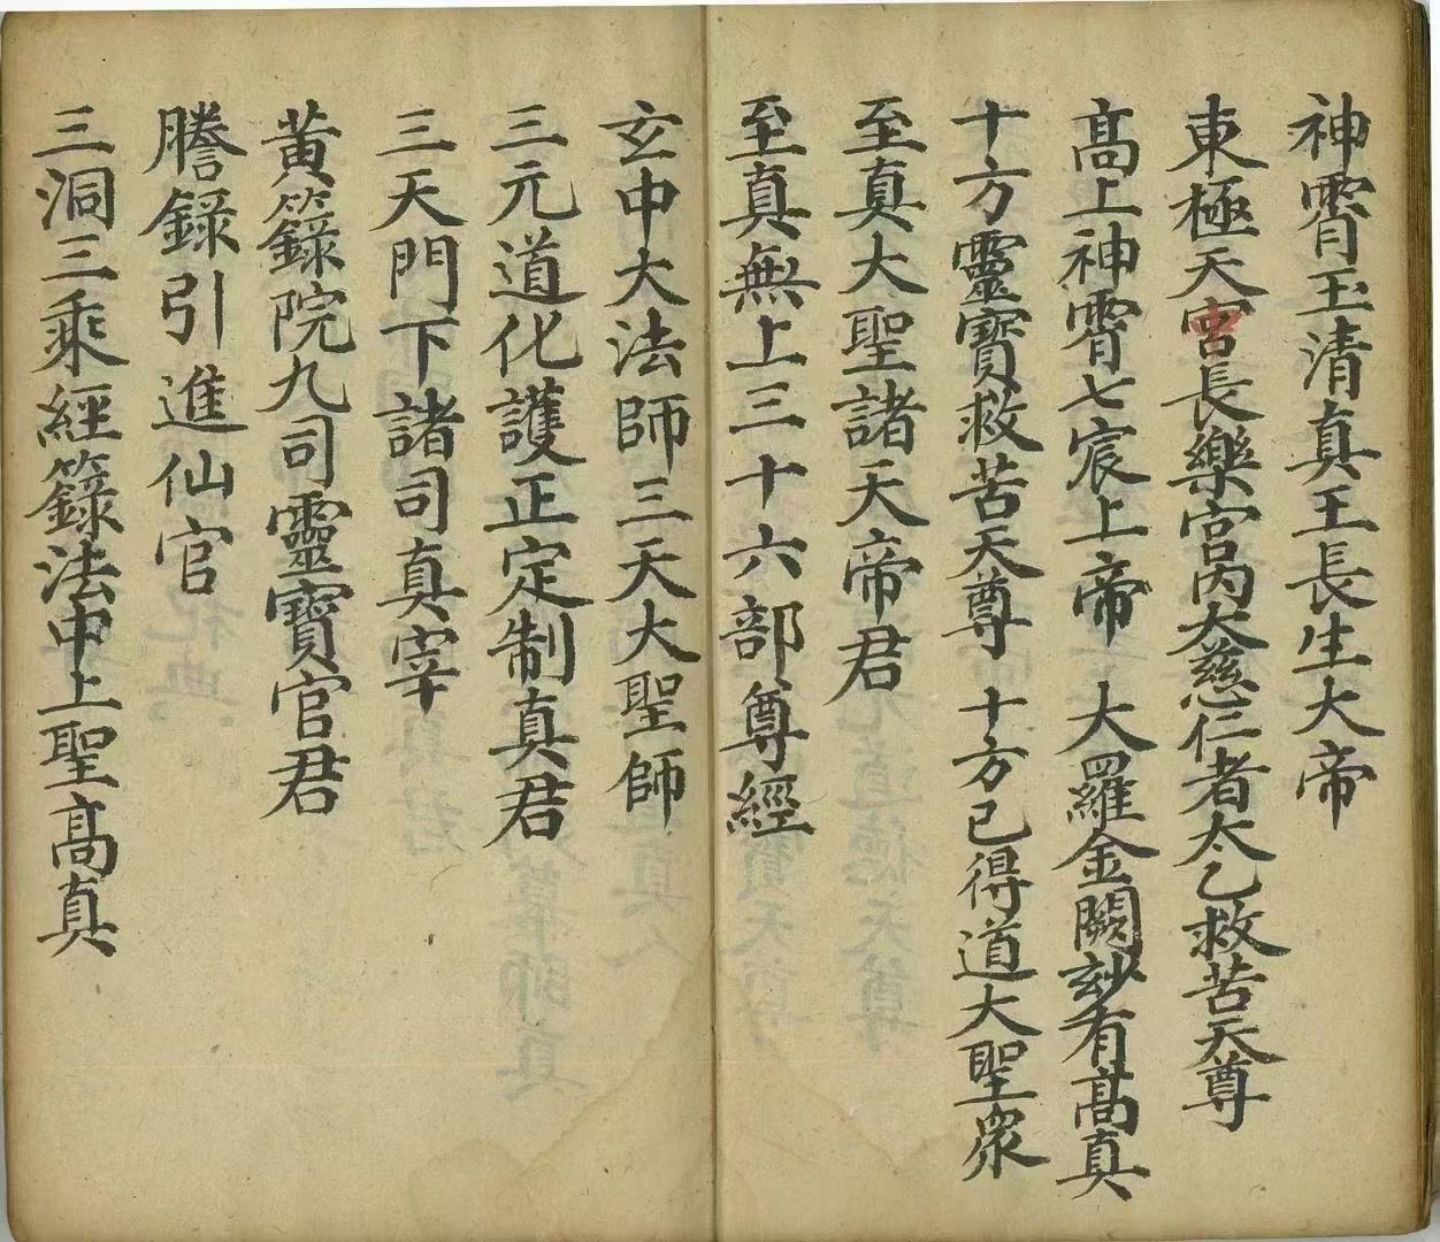 神霄玉清真王長生大帝
東極天宮長樂宮內大慈仁者太乙救苦天尊
髙上神霄七宸上帝　大羅金闕玅有髙真
十方靈寶救苦天尊　十方已得道大聖眾
至真大聖諸天帝君
至真無上三十六部尊經
玄中大法師三天大聖師
三元道化護正定制真君
三天門下諸司真宰
黄籙院九司靈寶官君
謄録引進仙官
三洞三乘經籙法中上聖髙真